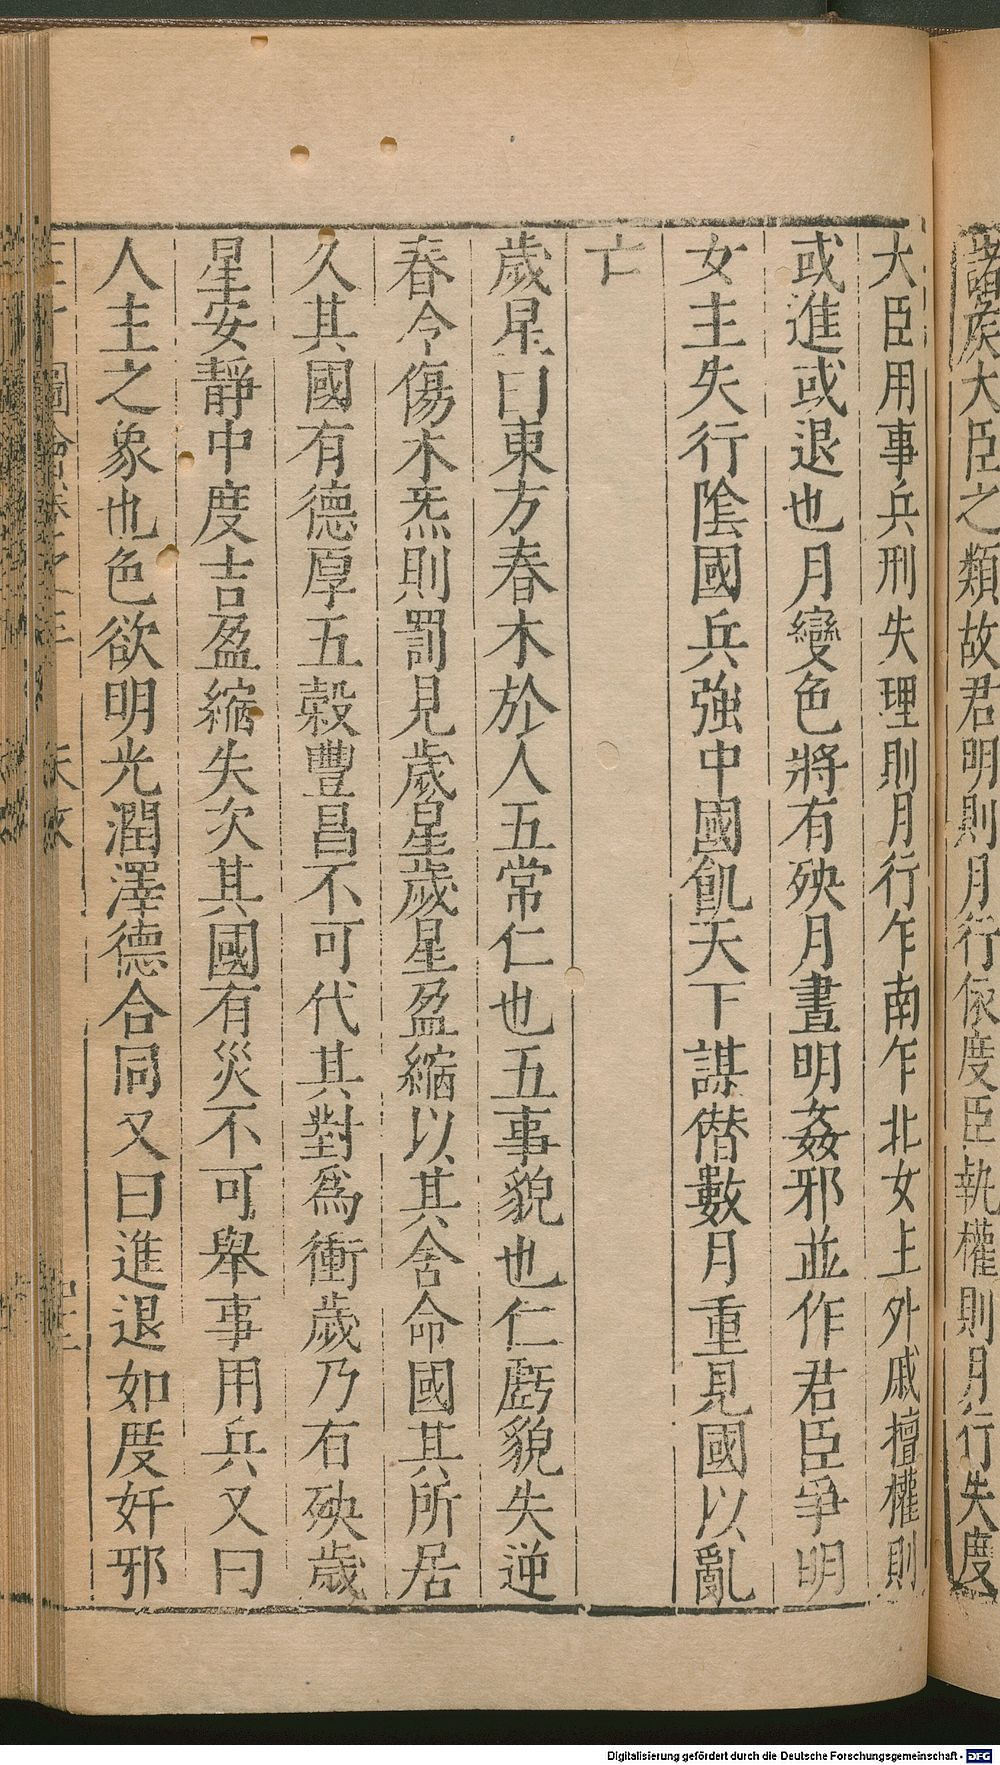 諸矦大臣之類故君明則月行依度臣執權則月行失度
大臣用事兵刑失理則月行乍南乍北女主外戚擅權則
或進或退也月變色將有殃月晝明姦邪並作君臣爭明
女主失行陰國兵強中國飢天下謀僣數月重見國以亂
亡
歲星曰東方春木於人五常仁也五事貌也仁虧貌失逆
春令傷木炁則罰見歲星歲星盈縮以其舍命國其所居
久其國有德厚五穀豐昌不可代其對為衝歲乃有殃歲
星安靜中度吉盈縮失次其國有災不可舉事用兵又曰
人主之象也色欲明光潤澤德合同又曰進退如度奸邪
Digitalisierung gefördert durch die Deutsche Forschungsgemeinschaft - DFG